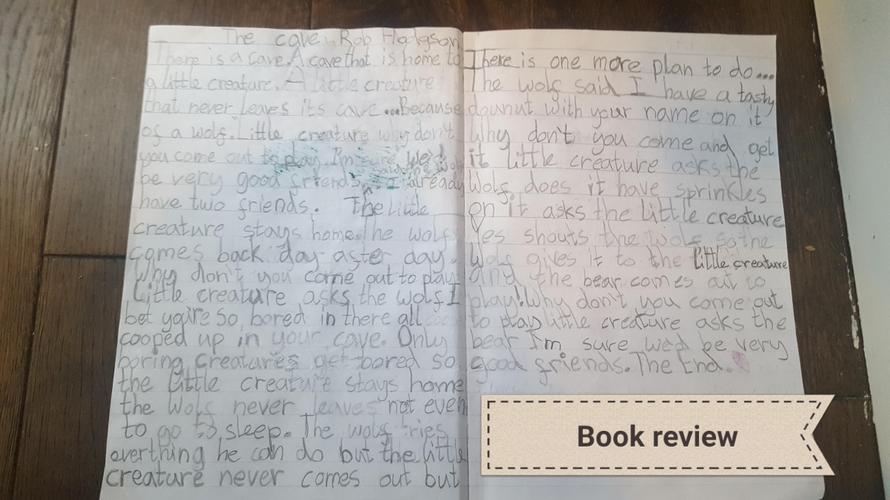 The cave. Rob Hodgson
There is a cave. A cave that is home to
a little creature. A little creature
that never leaves its cave...Because
of a wolf. Little creature why don't
you come out to play I'm sure we'd
be very good friends. I already
have two friends. The little
creature stays home. the wolf
comes back day after day.
Why don't you come out to play
Little creature asks the wolf I
bet you're so bored in there all
cooped up in your cave. Only
boring creatures get bored so
the little creature stays home
the wolf never leaves not even
to go to sleep. The wolf tries
everthing he can do but the little
creature never comes out but
There is one more plan to do...
The wolf said I have a tasty
dounut with your name on it
Why don't you come and get
it little creature asks the
wolf. does it have sprinkles
on it asks the little creature
Yes shouts the wolf so the
wolf gives it to the little creature
and the bear comes out to
play! Why don't you come out
to play little creature asks the
bear I'm sure we'd be very
good friends. The End.
Book review